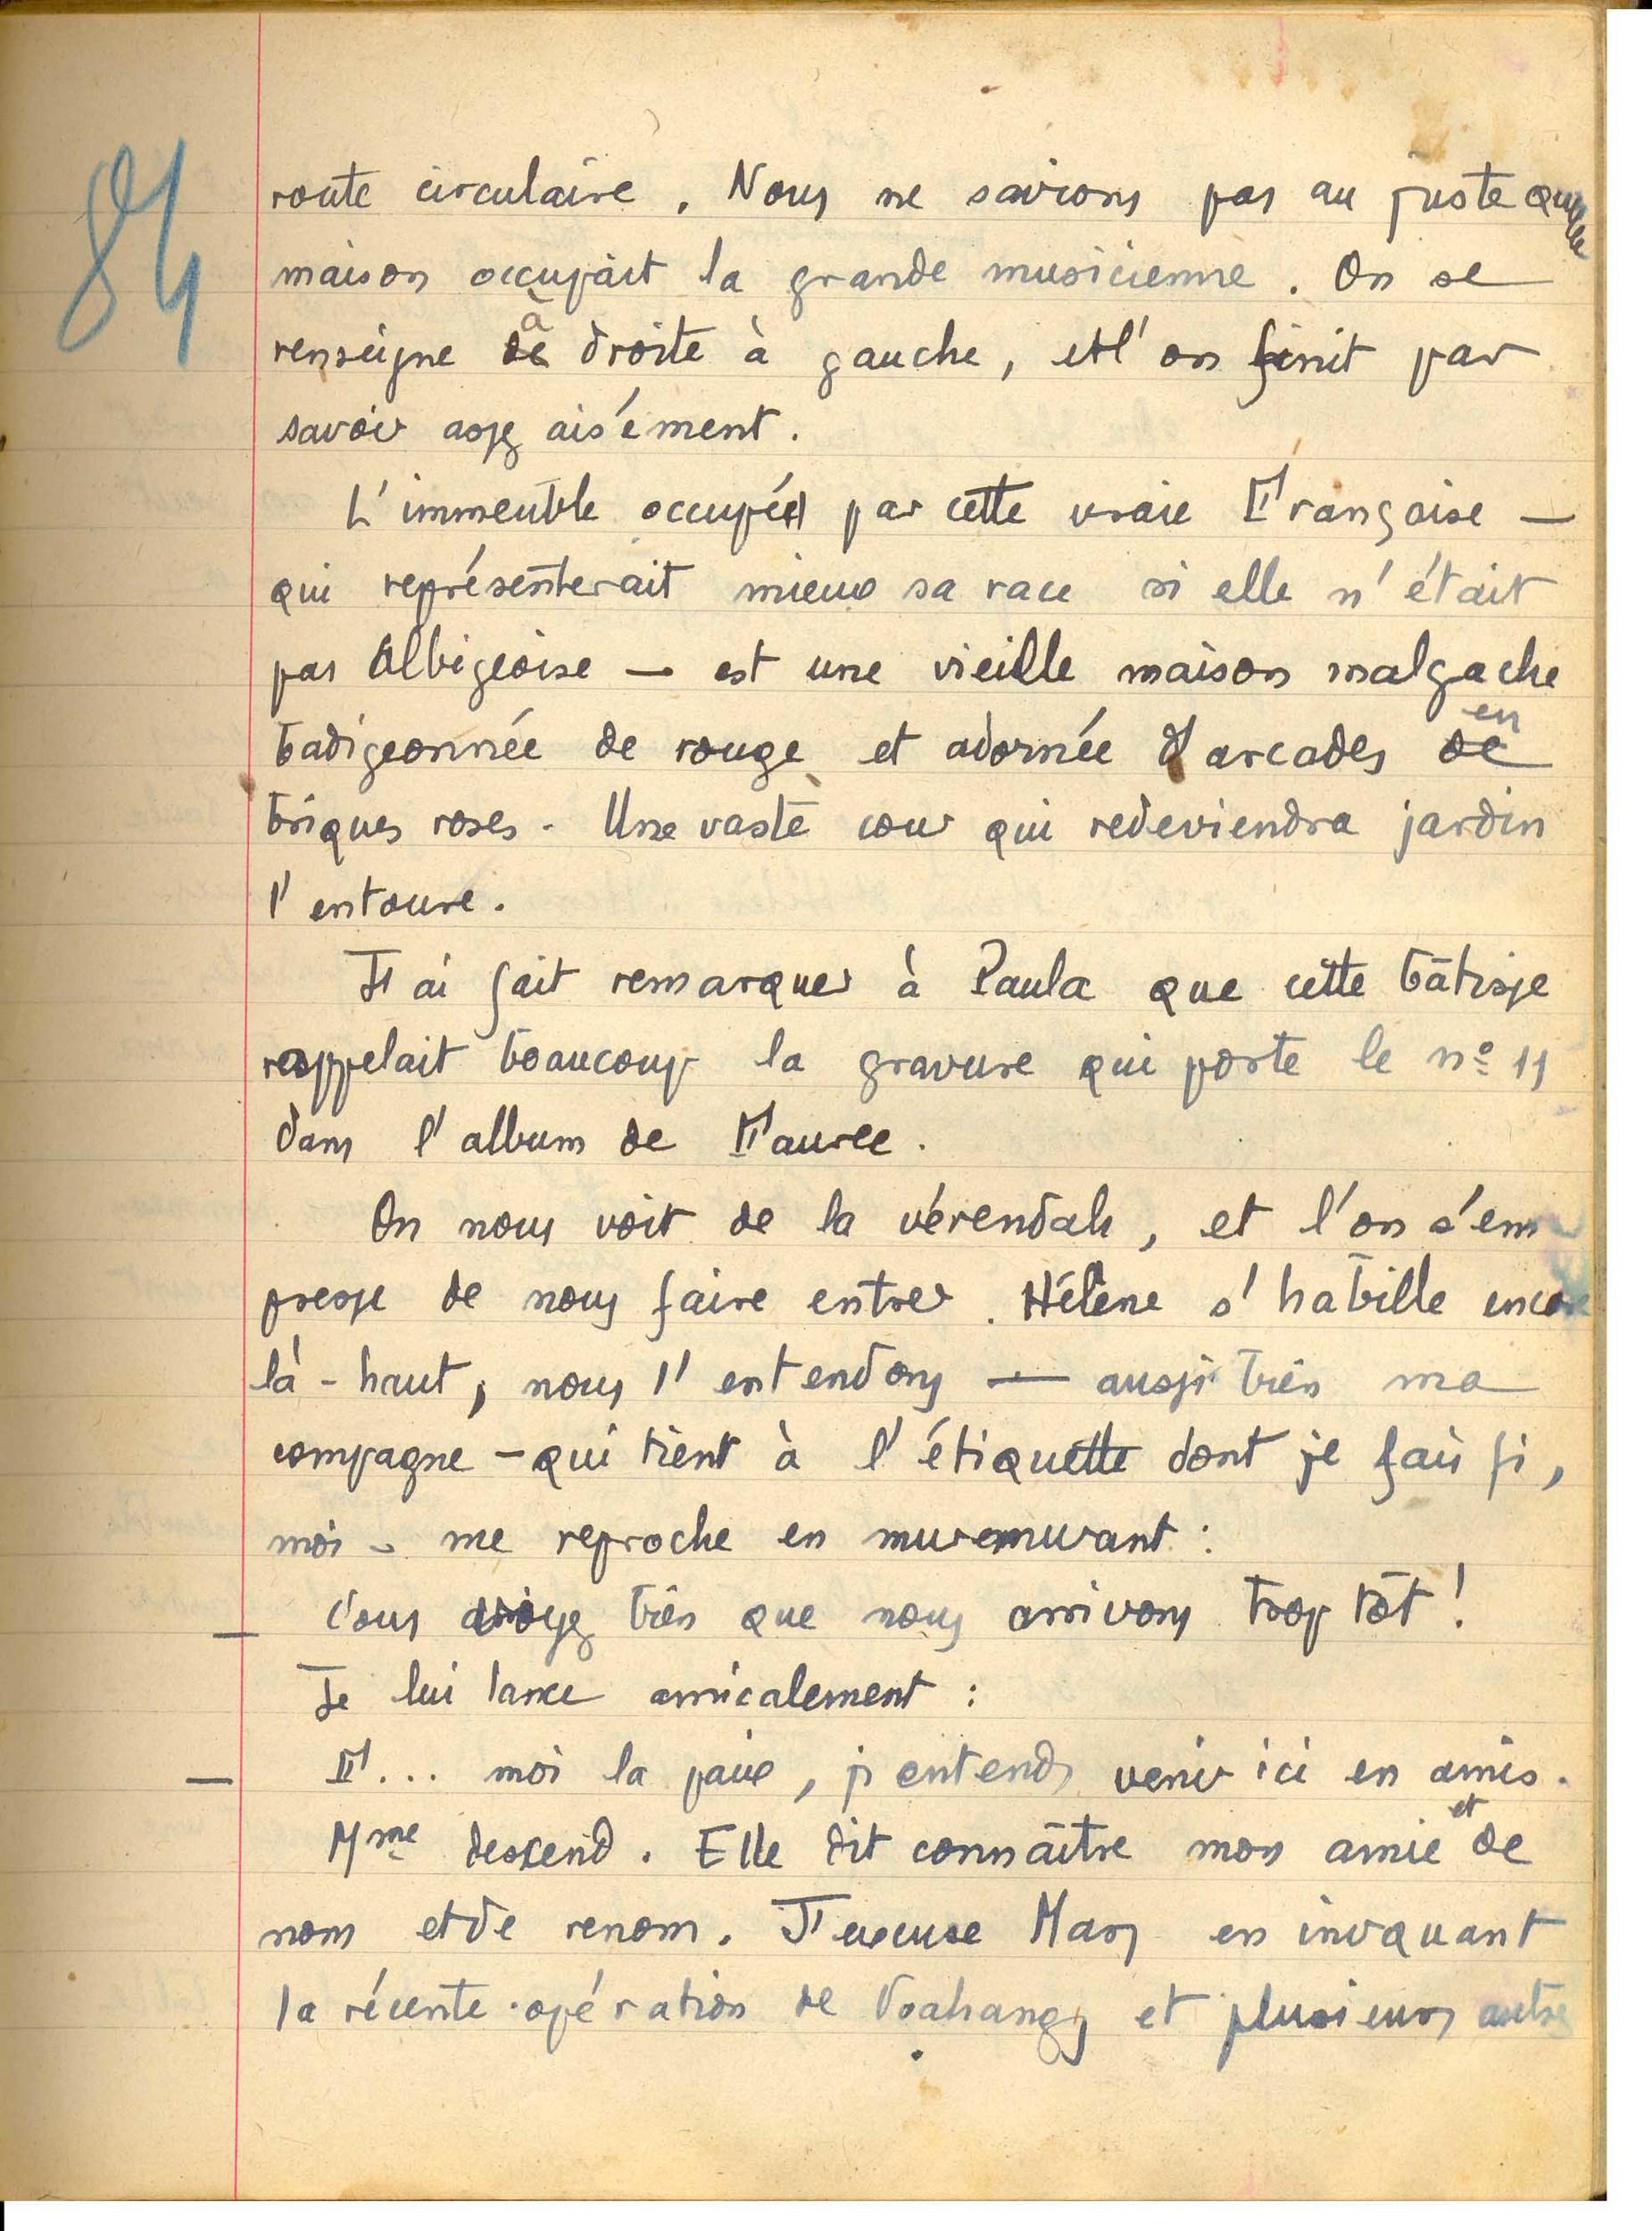 84
route circulaire. Nous ne savions pas au juste quelle
maison occupait la grande musicienne. On se
renseigne à droite à gauche, et l'on finit par
savoir assez aisément.
L'immeuble occupé par cette vraie Française —
qui représenterait mieux sa race si elle n'était
pas Albigeoise — est une vieille maison malgache
badigeonnée de rouge et adornée d'arcades en
briques roses. Une vaste cour qui redeviendra jardin
l'entoure.
J'ai fait remarquer à Paula que cette bâtisse
rappelait beaucoup la gravure qui porte le n° 11
dans l'album de Fauree.
On nous voit de la vérendah, et l'on s'em
presse de nous faire entrer. Hélène s'habille encore
là-haut, nous l'entendons — aussi bien ma
compagne — qui tient à l'étiquette dont je fais fi,
moi — me reproche en muremurant :
— Vous voyez bien que nous arrivons trop tôt !
Je lui lance amicalement :
— F... moi la paix, j'entends venir ici en amis.
Mme descend. Elle dit connaître mon amie et de
nom et de renom. J'excuse Mary en invoquant
la récente opération de Voahangy et plusieurs autres